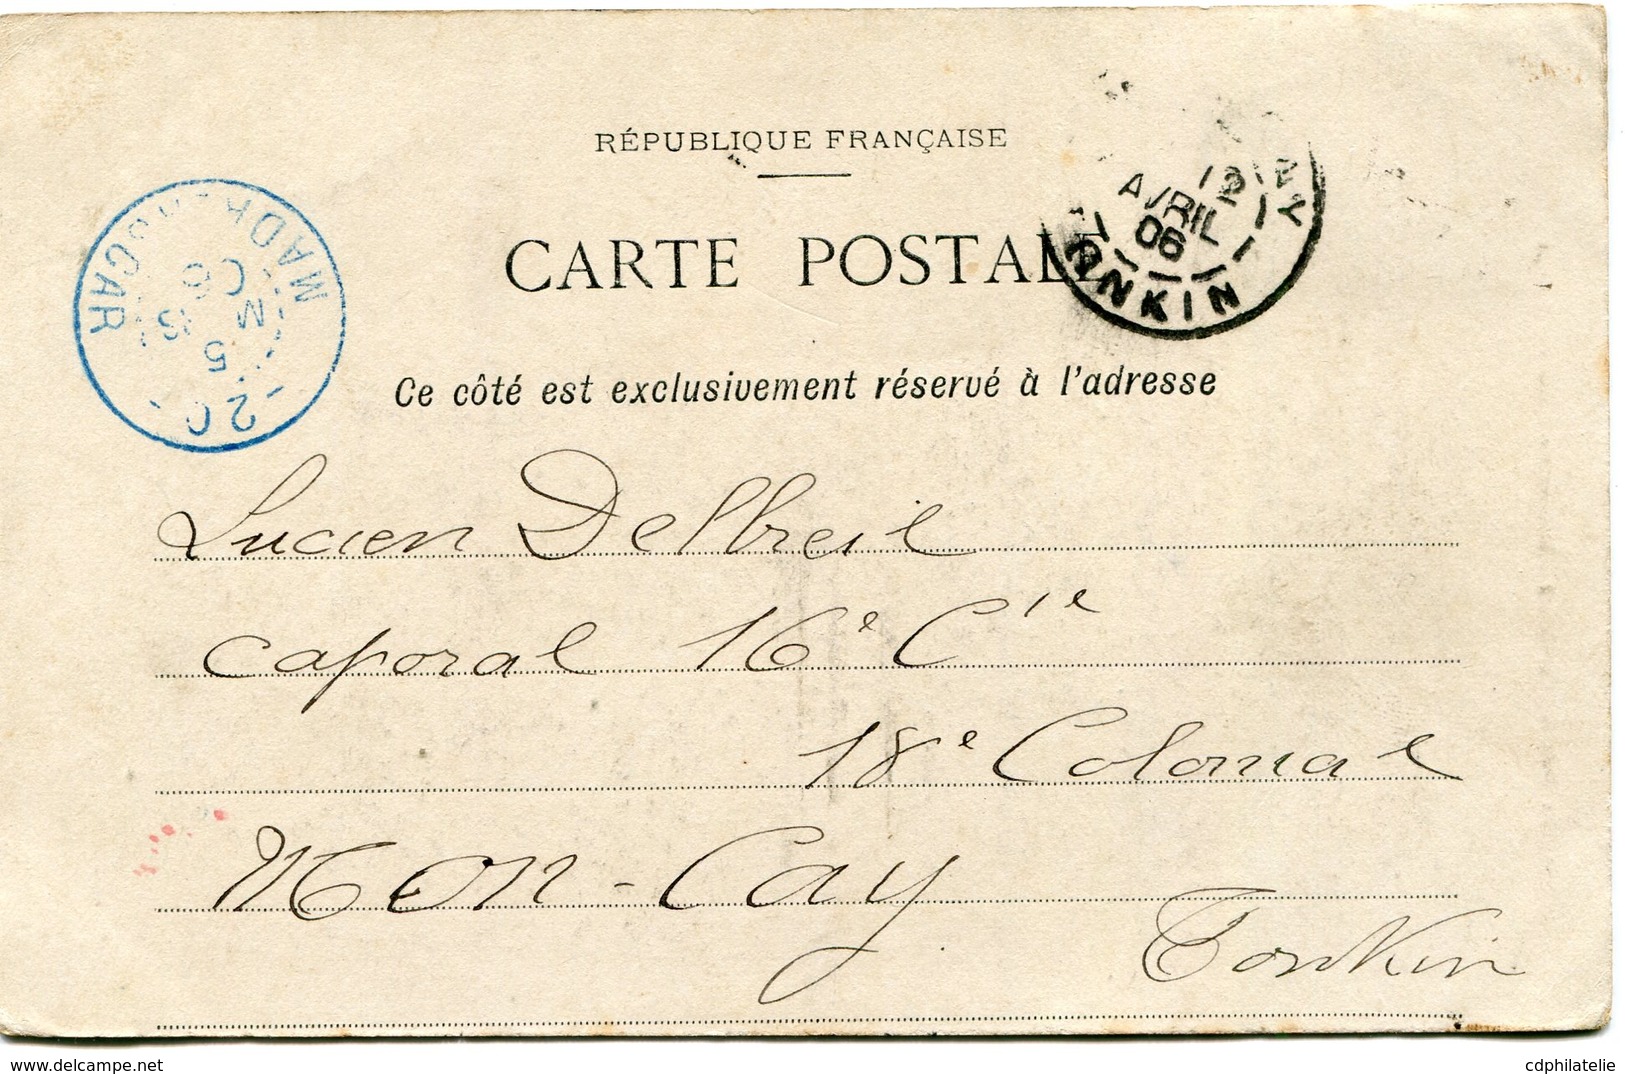 RÉPUBLIQUE FRANÇAISE
CARTE POSTALE
Ce côté est exclusivement réservé à l'adresse
MADAGASCAR
5
MARS
06
AVRIL
06
TONKIN
Lucien Delbreil
caporal 16e Cie
18e Colonial
Mon-Cay
Tonkin
www.delcampe.net
cdphilatelie